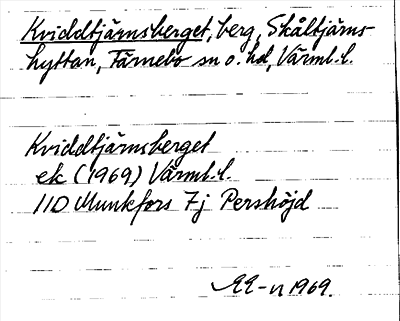 Kviddtjärnsberget, berg, Skåltjärns-
hyttan, Färnebo sn o. hd, Värml. l.
Kviddtjärnsberget
ek (1969) Värml. l.
11D Munkfors 7j Pershöjd
1969.